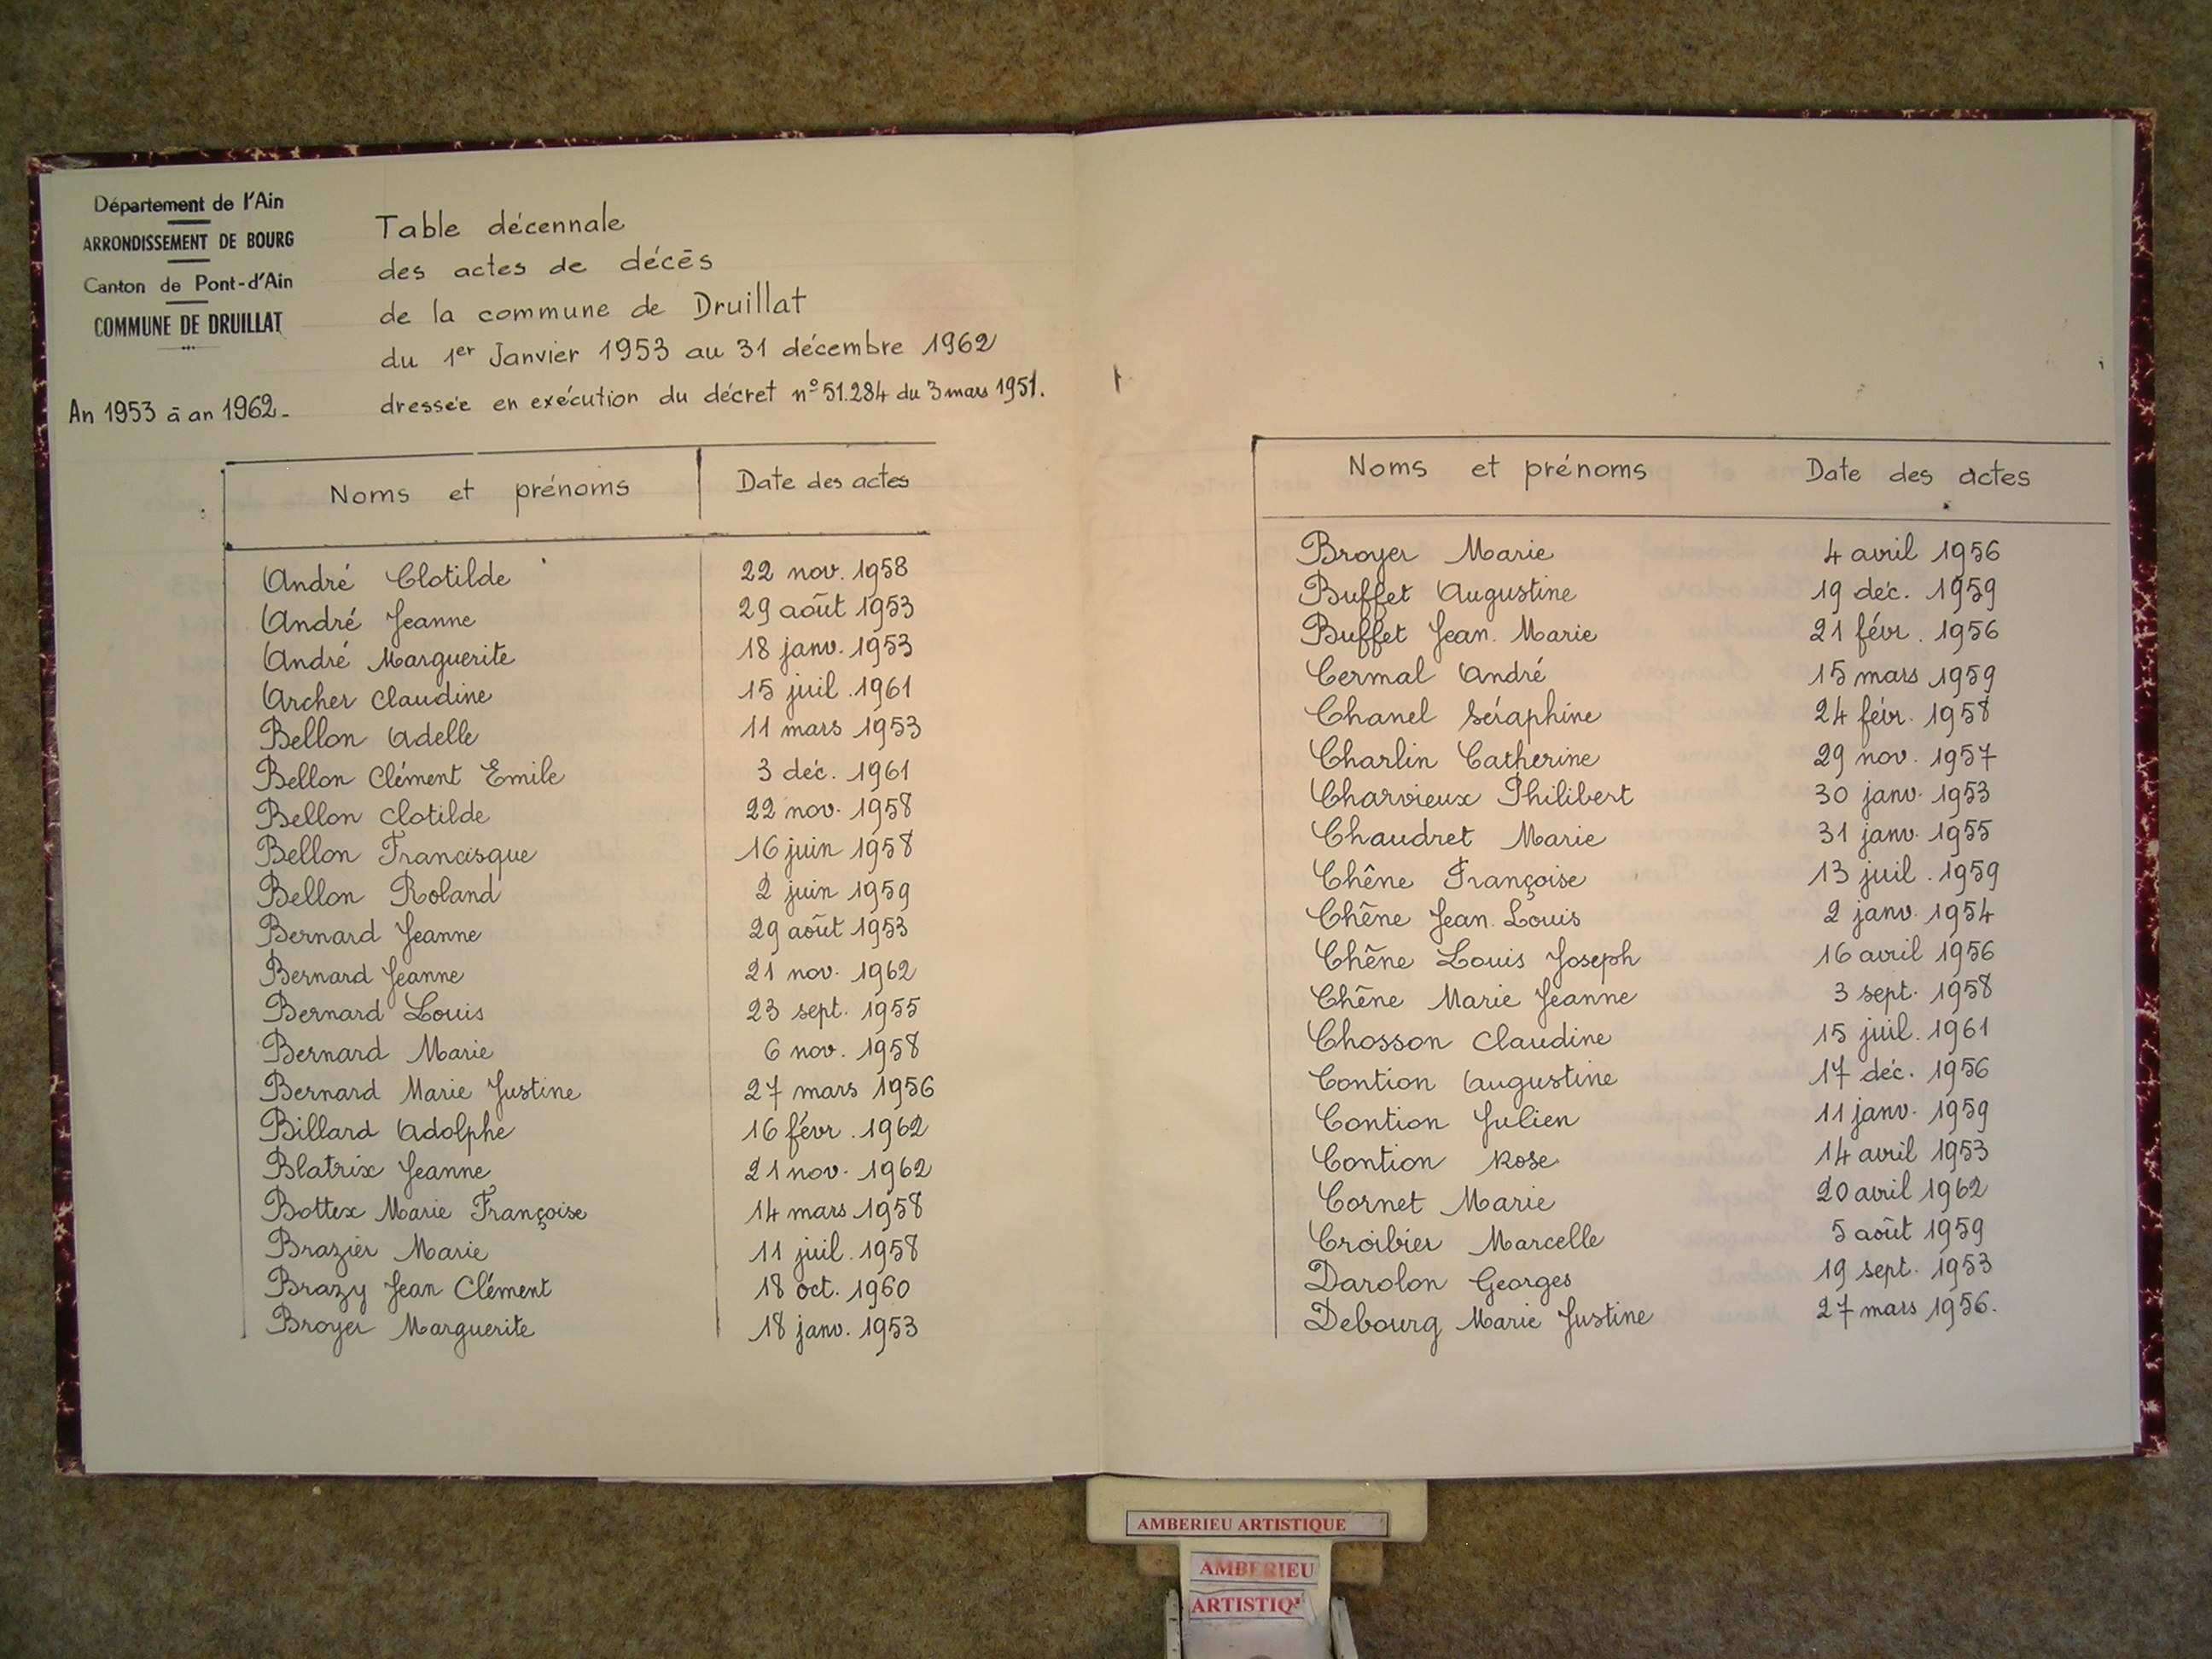 Département de l'Ain
ARRONDISSEMENT DE BOURG
Canton de Pont-d'Ain
COMMUNE DE DRUILLAT
An 1953 à an 1962.
Table décennale
des actes de décès
de la commune de Druillat
du 1er Janvier 1953 au 31 décembre 1962
dressée en exécution du décret n° 51.284 du 3 mars 1951.
Noms et prénoms Date des actes
André Clotilde 22 nov. 1958
André Jeanne 29 août 1953
André Marguerite 18 janv. 1953
Archer Claudine 15 juil. 1961
Bellon Adelle 11 mars 1953
Bellon Clément Emile 3 déc. 1961
Bellon Clotilde 22 nov. 1958
Bellon Francisque 16 juin 1958
Bellon Roland 2 juin 1959
Bernard Jeanne 29 août 1953
Bernard Jeanne 21 nov. 1962
Bernard Louis 23 sept. 1955
Bernard Marie 6 nov. 1958
Bernard Marie Justine 27 mars 1956
Billard Adolphe 16 févr. 1962
Blatrix Jeanne 21 nov. 1962
Bottex Marie Françoise 14 mars 1958
Brazier Marie 11 juil. 1958
Brazy Jean Clément 18 oct. 1960
Broyer Marguerite 18 janv. 1953
Noms et prénoms Date des actes
Broyer Marie 4 avril 1956
Buffet Augustine 19 déc. 1959
Buffet Jean. Marie 21 févr. 1956
Cermal André 15 mars 1959
Chanel Séraphine 24 févr. 1958
Charlin Catherine 29 nov. 1957
Charvieux Philibert 30 janv. 1953
Chaudret Marie 31 janv. 1955
Chêne Françoise 13 juil. 1959
Chêne Jean. Louis 2 janv. 1954
Chêne Louis Joseph 16 avril 1956
Chêne Marie Jeanne 3 sept. 1958
Chosson Claudine 15 juil. 1961
Contion Augustine 17 déc. 1956
Contion Julien 11 janv. 1959
Contion Rose 14 avril 1953
Cornet Marie 20 avril 1962
Croibier Marcelle 5 août 1959
Darolon Georges 19 sept. 1953
Debourg Marie Justine 27 mars 1956.
AMBERIEU ARTISTIQUE
AMBERIEU
ARTISTIQ